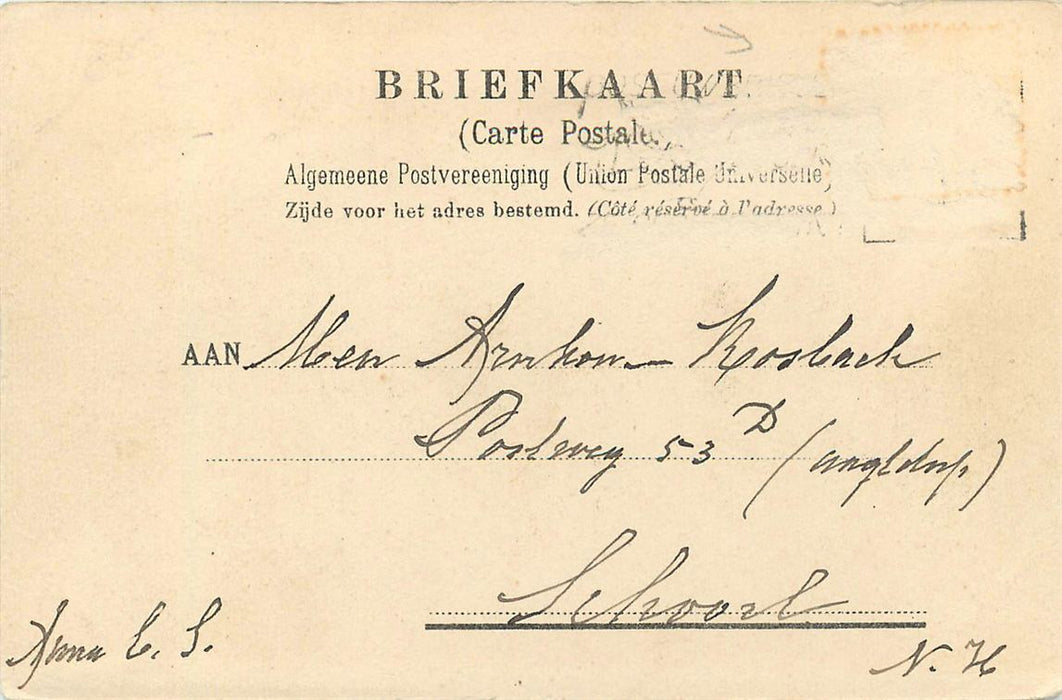 BRIEFKAART
(Carte Postale.)
Algemeene Postvereeniging (Union Postale Universelle)
Zijde voor het adres bestemd. (Côté réservé à l'adresse.)
AAN Mev Rosbach
Postweg 53 D
Schoorl
N. H
Anna C. S.